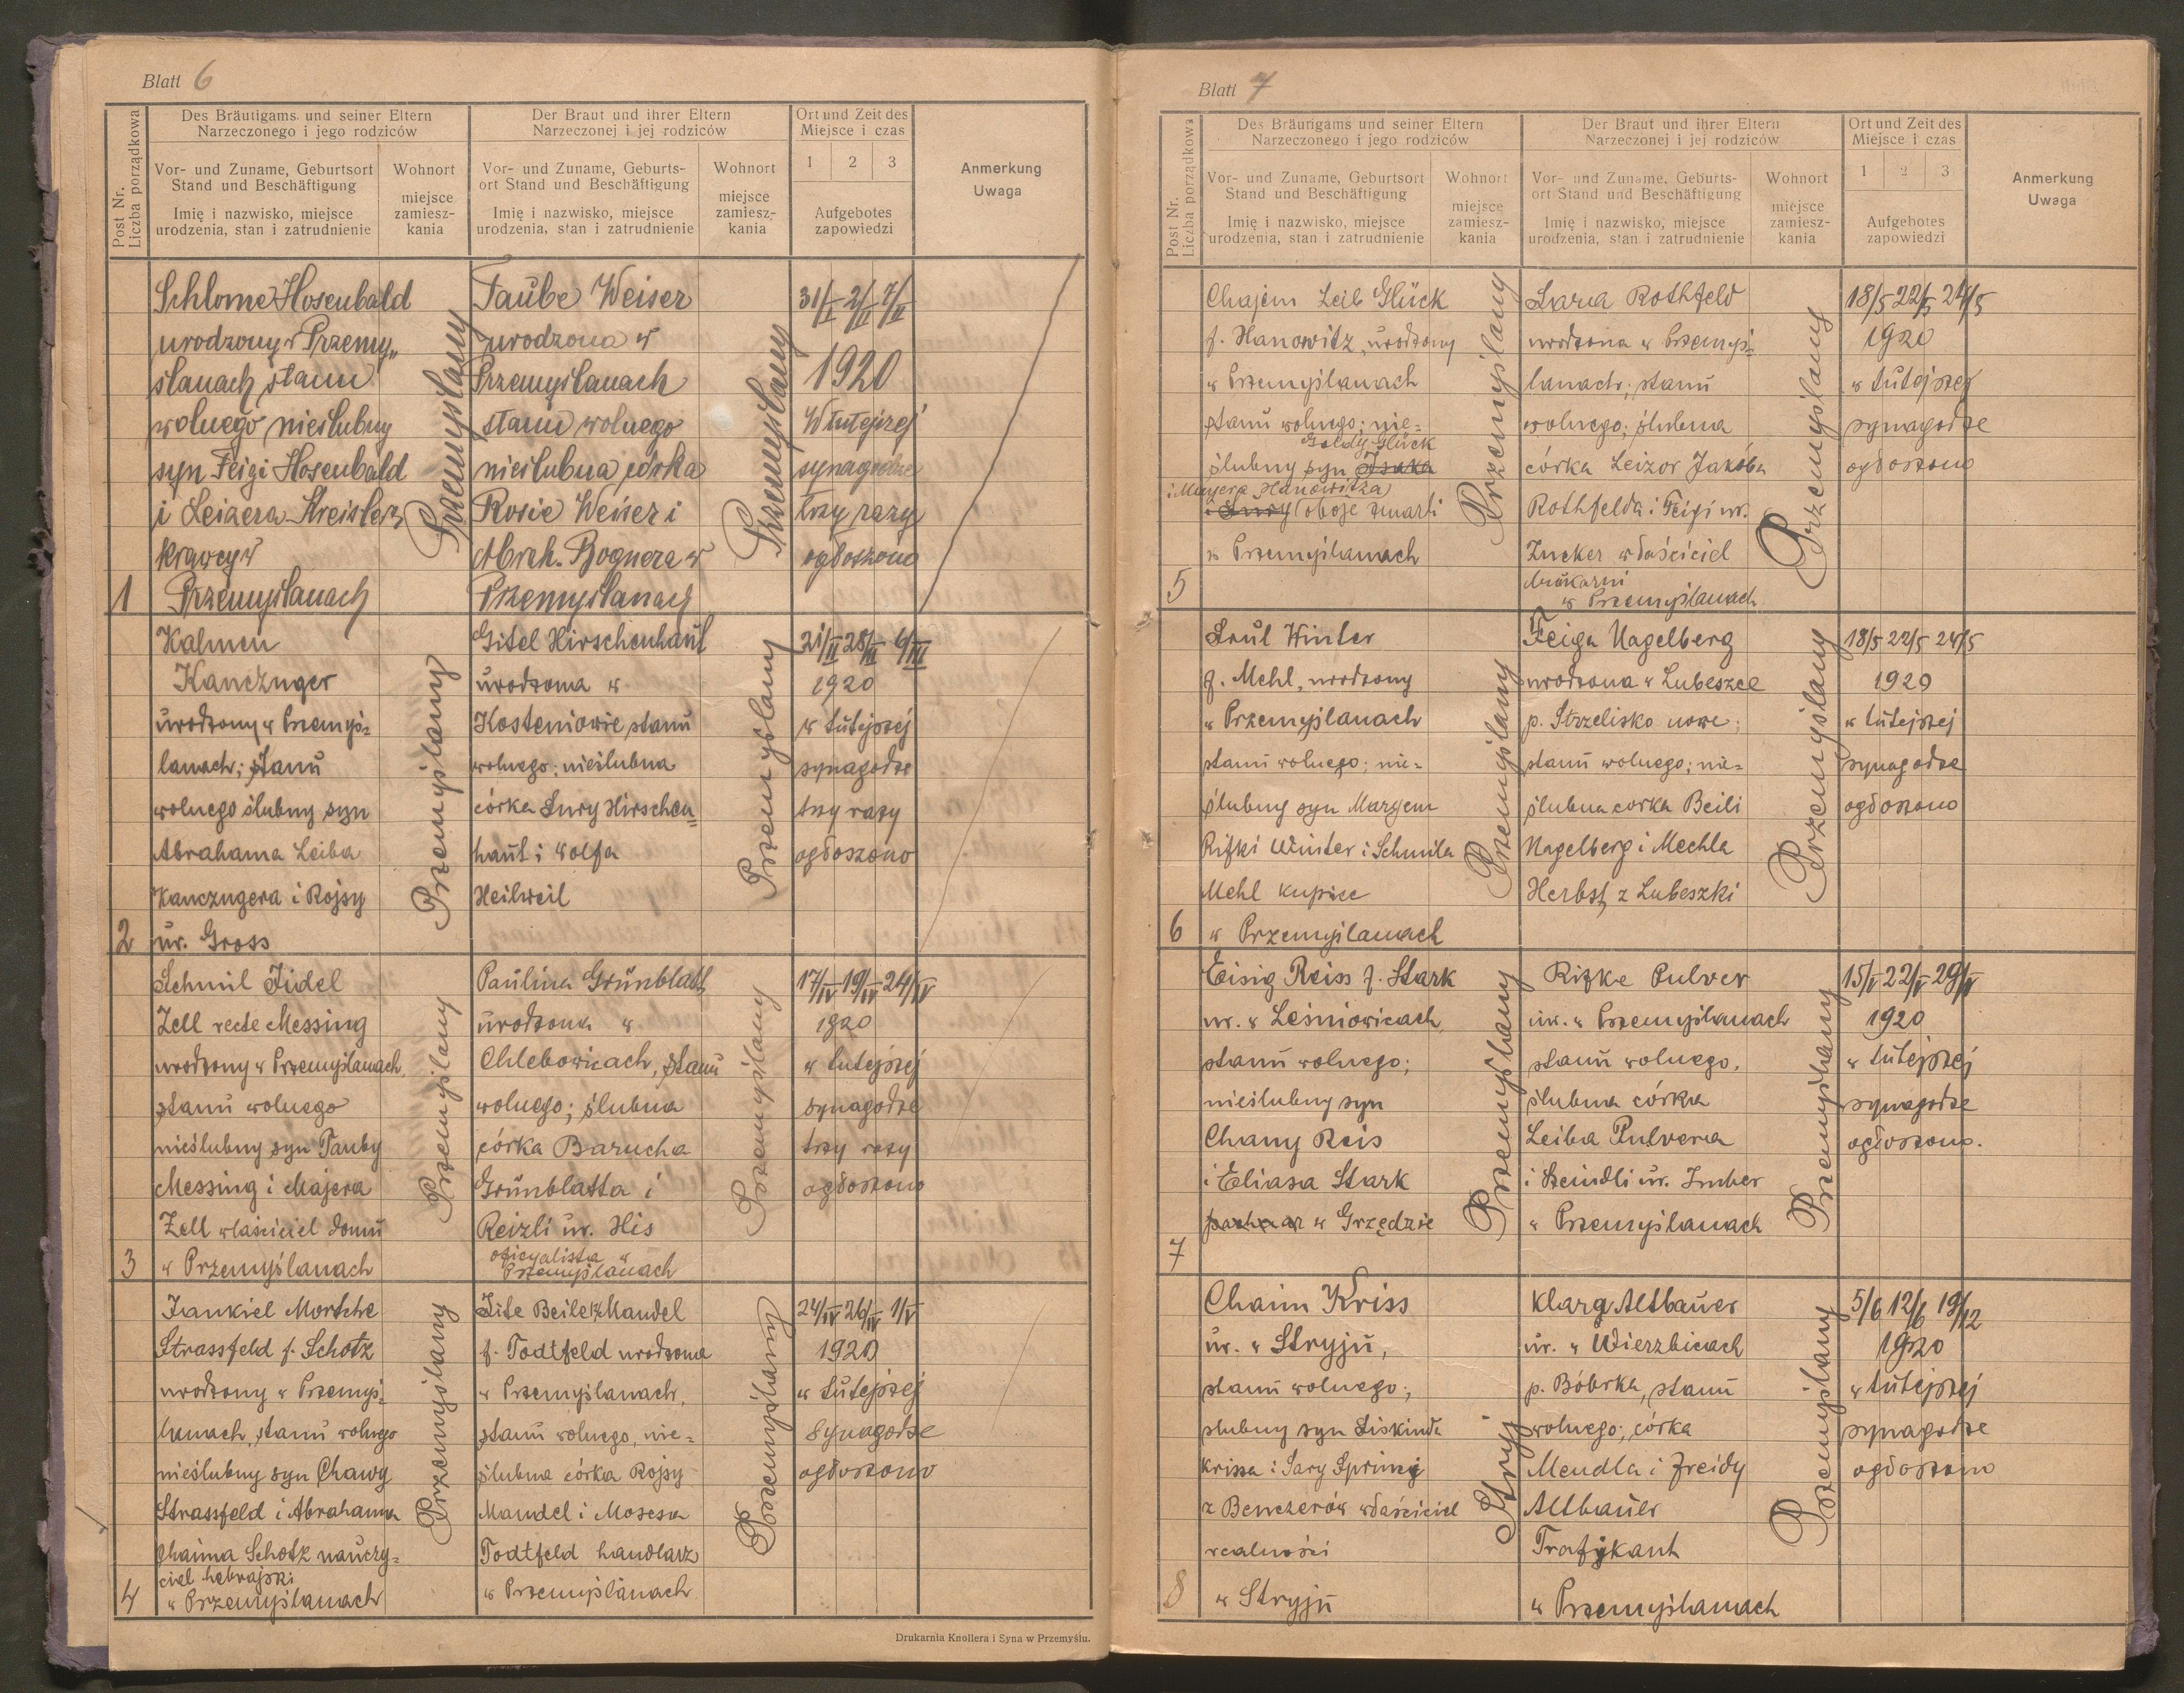 Blatt 6
Post Nr.
Liczba porządkowa
Des Bräutigams und seiner Eltern
Narzeczonego i jego rodziców
Der Braut und ihrer Eltern
Narzeczonej i jej rodziców
Ort und Zeit des
Miejsce i czas
Vor- und Zuname, Geburtsort
Stand und Beschäftigung
Imię i nazwisko, miejsce
urodzenia, stan i zatrudnienie
Wohnort
miejsce
zamiesz-
kania
Vor- und Zuname, Geburts-
ort Stand und Beschäftigung
Imię i nazwisko, miejsce
urodzenia, stan i zatrudnienie
Wohnort
miejsce
zamiesz-
kania
1 2 3
Aufgebotes
zapowiedzi
Anmerkung
Uwaga
1
Schlome Hosenbald
urodzony w Przemy„
slanach stanu
wolnego nieslubny
syn Feigi Hosenbald
i Leizera Kreislera
krawcy w
Przemyslanach
Przemyslany
Taube Weiser
urodzona w
Przemyslanach
stanu wolnego
nieslubna córka
Rosie Weiser i
Abrah. Bognera w
Przemyslanach
Przemyslany
31/I 2/II 7/II
1920
W tutejszej
synagodze
trzy razy
ogłoszono
2
Kalmen
Kanczuger
urodzony w Przemyś=
lanach; stanu
wolnego ślubny syn
Abrahama Leiba
Kanczugera i Rojsy
ur. Gross
Przemyślany
Gitel Hirschenhaut
urodzona w
Kosteniowie stanu
wolnego; nieślubna
córka Sury Hirschen=
haut i Wolfa
Heilweil
Przemyslany
21/II 28/II 6/III
1920
w tutejszej
synagodze
trzy razy
ogłoszono
3
Schmil Jidel
Zell recte Messing
urodzony w Przemyślanach,
stanu wolnego
nieślubny syn Tauby
Messing i Majera
Zell właściciel domu
w Przemyślanach
Przemyślany
Paulina Grünblatt
urodzona w
Chlebowicach, stanu
wolnego; ślubna
córka Barucha
Grünblatta i
Reizli ur. His
oficyalista w
Przemyślanach
Przemyślany
17/IV 19/IV 24/IV
1920
w tutejszej
synagodze
trzy razy
ogłoszono
4
Jankiel Mortche
Strassfeld f. Schotz
urodzony w Przemyś=
lanach, stanu wolnego
nieślubny syn Chawy
Strassfeld i Abrahama
Chaima Schotz nauczy=
ciel hebrajski
w Przemyślanach
Przemyślany
Zite Beile Mandel
f. Todtfeld urodzona
w Przemyślanach,
stanu wolnego, nie=
ślubna córka Rojsy
Mandel i Mosesa
Todtfeld handlarz
w Przemyślanach
Przemyślany
24/IV 26/IV 1/V
1920
w tutejszej
synagodze
ogłoszono
Drukarnia Knollera i Syna w Przemyślu.
Blatt 7
Post Nr.
Liczba porządkowa
Des Bräutigams und seiner Eltern
Narzeczonego i jego rodziców
Der Braut und ihrer Eltern
Narzeczonej i jej rodziców
Ort und Zeit des
Miejsce i czas
Vor- und Zuname, Geburtsort
Stand und Beschäftigung
Imię i nazwisko, miejsce
urodzenia, stan i zatrudnienie
Wohnort
miejsce
zamiesz-
kania
Vor- und Zuname, Geburts-
ort Stand und Beschäftigung
Imię i nazwisko, miejsce
urodzenia, stan i zatrudnienie
Wohnort
miejsce
zamiesz-
kania
1 2 3
Aufgebotes
zapowiedzi
Anmerkung
Uwaga
5
Chajem Leib Glück
f. Hanowitz, urodzony
w Przemyślanach
stanu wolnego; nie=
Goldy Glück
ślubny syn Isaka
i Mayera Hanowitza
i Sury oboje zmarli
w Przemyślanach
Przemyślany
Sara Rothfeld
urodzona w Przemyś=
lanach; stanu
wolnego; ślubna
córka Leizor Jakóba
Rothfelda i Feigi ur.
Zucker właściciel
drukarni
w Przemyślanach
Przemyślany
18/5 22/5 24/5
1920
w tutejszej
synagodze
ogłoszono
6
Srul Winter
f. Mehl, urodzony
w Przemyślanach
stanu wolnego; nie=
ślubny syn Maryem
Rifki Winter i Schmila
Mehl kupiec
w Przemyślanach
Przemyślany
Feiga Nagelberg
urodzona w Lubeszce
p. Strzelisko nowe;
stanu wolnego; nie=
ślubna corka Beili
Nagelberg i Mechla
Herbst z Lubeszki
Przemyślany
18/5 22/5 24/5
1920
w tutejszej
synagodze
ogłoszono
7
Eisig Reiss f. Stark
ur. w Leśniowicach,
stanu wolnego;
nieślubny syn
Chany Reis
i Eliasa Stark
w Grzędzie
Przemyślany
Rifke Pulver
ur. w Przemyślanach
stanu wolnego,
ślubna córka
Leiba Pulvera
i Beindli ur. Imber
w Przemyślanach
Przemyślany
15/V 22/V 29/V
1920
w tutejszej
synagodze
ogłoszono.
8
Chaim Kriss
ur. w Stryju,
stanu wolnego;
ślubny syn Siskinda
Krissa i Sary Sprinci
z Benczerów właściciel
realności
w Stryju
Stryj
Klara Altbauer
ur. w Wierzbicach
p. Bóbrka, stanu
wolnego; córka
Mendla i Freidy
Altbauer
Trafikant
w Przemyślanach
Przemyślany
5/6 12/6 19/12
1920
w tutejszej
synagodze
ogłoszono